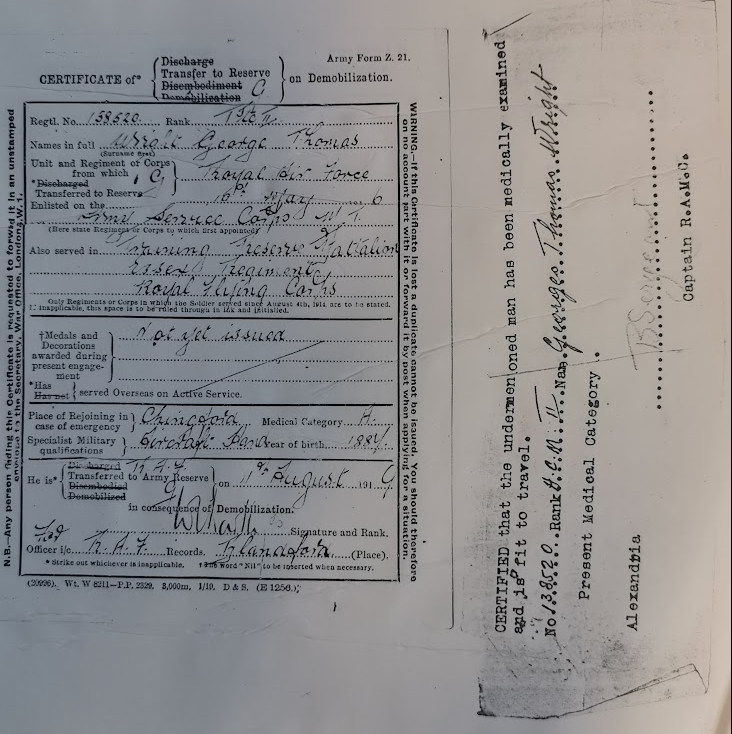 Army Form Z. 21.
CERTIFICATE of* { Discharge
Transfer to Reserve
Disembodiment
Demobilization } on Demobilization.
Regtl. No. 158520. Rank
Names in full Wright George Thomas
(Surname first)
Unit and Regiment or Corps
from which
*Discharged
Transferred to Reserve
Royal Air Force
Enlisted on the 16th May 6
Army Service Corps M.T.
(Here state Regiment or Corps to which first appointed)
Also served in Training Reserve Battalion
Essex Regiment
Royal Flying Corps
Only Regiments or Corps in which the Soldier served since August 4th, 1914 are to be stated.
If inapplicable, this space is to be ruled through in ink and initialled.
†Medals and
Decorations
awarded during
present engage-
ment
Not yet issued
*Has
Has not } served Overseas on Active Service.
Place of Rejoining in
case of emergency } Chingford Medical Category A.
Specialist Military
qualifications } Aircraft Hand Year of birth 1887
He is* { Discharged
Transferred to Army Reserve
Disembodied
Demobilized } on 11th August 1919
R.A.F.
in consequence of Demobilization.
Signature and Rank.
Officer i/c R.A.F. Records. Blandford (Place).
* Strike out whichever is inapplicable. †The word "Nil" to be inserted when necessary.
(20996). Wt. W 8211—P.P. 2329. 3,000m. 1/19. D & S. (E 1256.)
N.B.—Any person finding this Certificate is requested to forward it in an unstamped
envelope to the Secretary, War Office, London, S.W. 1.
WARNING.—If this Certificate is lost a duplicate cannot be issued. You should therefore
on no account part with it or forward it by post when applying for a situation.
CERTIFIED that the undermentioned man has been medically examined
and is fit to travel.
No 138520 Rank Name Georges Thomas Wright
Present Medical Category
Alexandria
Captain R.A.M.C.